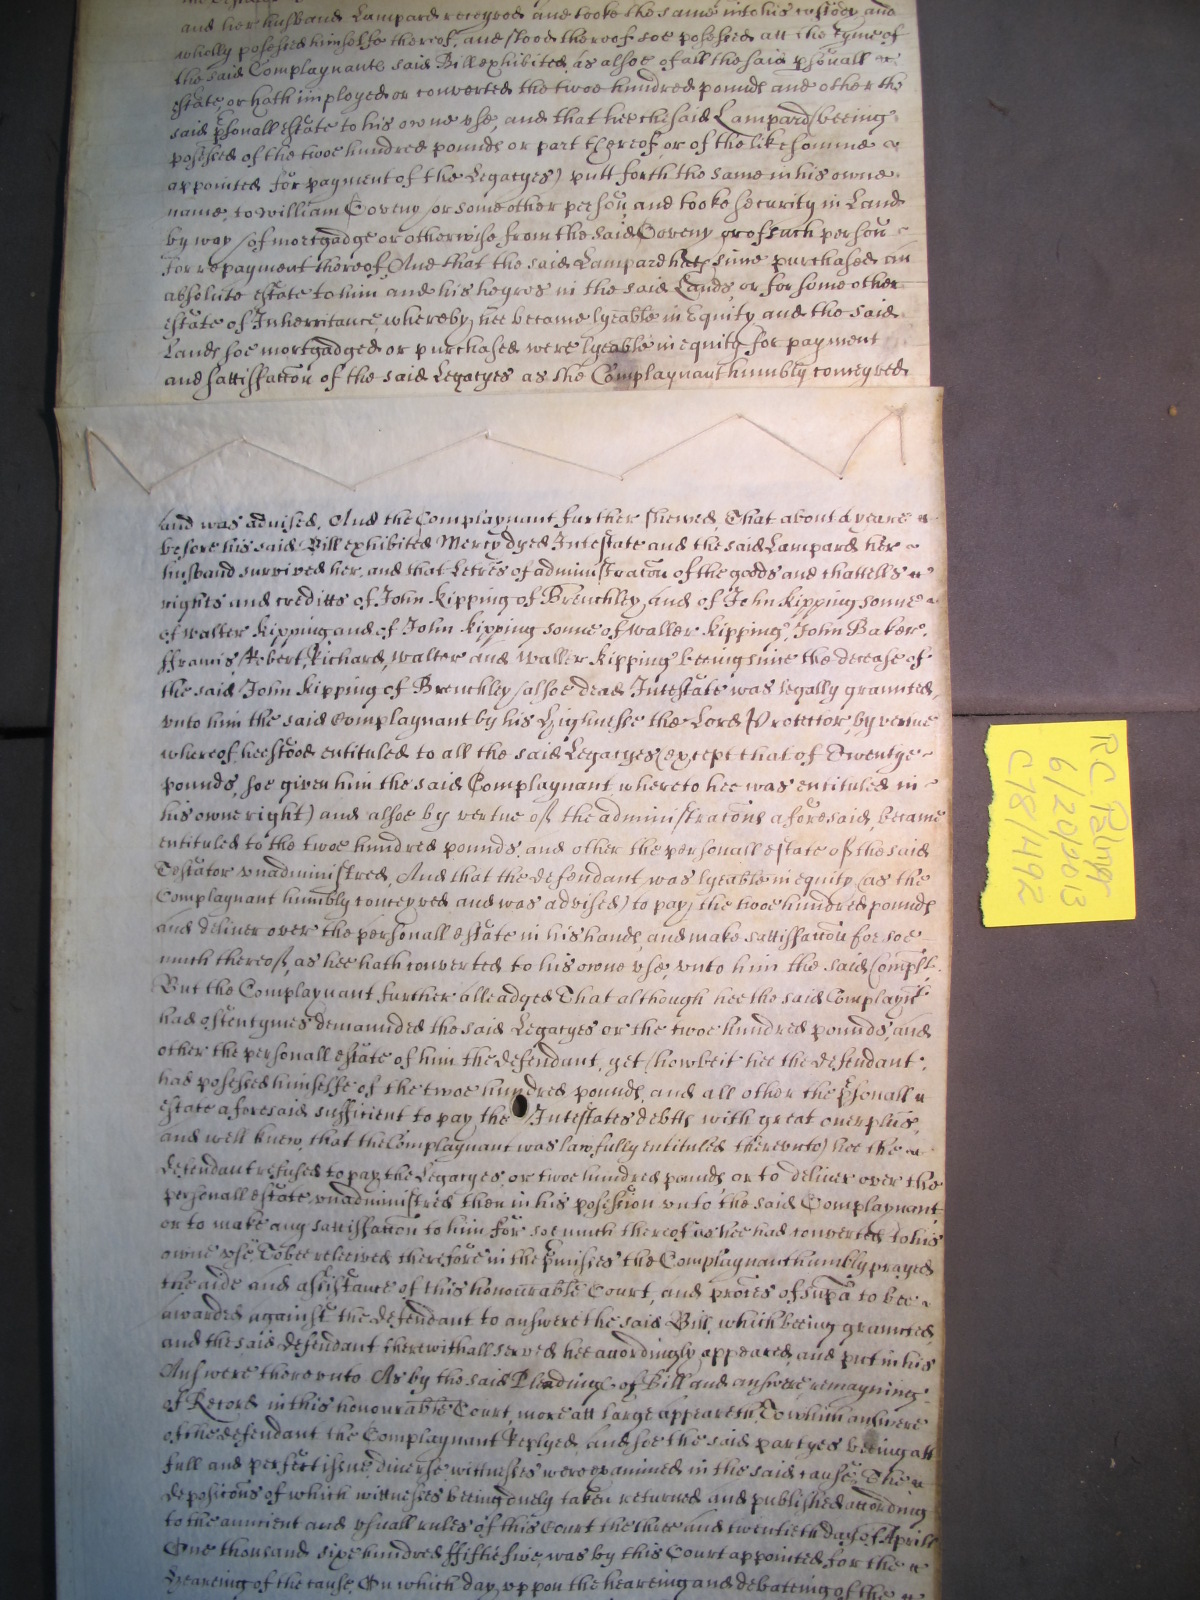 and her husband Lampard receyved and tooke the same into his custody and
wholly possessed himselfe thereof, and stood thereof soe possessed att the tyme of
the said Complaynants said Bill exhibited, as alsoe of all the said psonall
estate, or hath imployed or converted the twoe hundred pounds and other the
said psonall estate to his owne vse, and that hee the said Lampard (beeing
possessed of the twoe hundred pounds or part thereof, or of the like somme
appointed for payment of the Legacyes) putt forth the same in his owne
name, to William Coveny or some other person, and tooke security in Land
by way of mortgadge or otherwise from the said Coveny or of such person
for repayment thereof And that the said Lampard hath since purchased an
absolute estate to him and his heyres in the said Lands, or for some other
estate of Inherritance, whereby hee became lyeable in Equity and the said
Lands soe mortgadged or purchased were lyeable in equity for payment
and sattisfaccon of the said Legacyes as the Complaynant humbly conceyved
and was advised, And the Complaynant further shewed, That about 4 yeares
before his said Bill exhibited Mercy dyed Intestate and the said Lampard her
husband survived her, and that Letres of administracon of the goods and chattells
rights and creditts of John Kipping of Brenchley, and of John Kipping sonne
of Walter Kipping and of John Kipping sonne of Waller Kipping, John Baker,
ffrancis, Robert, Richard, Walter and Waller Kipping beeing since the decease of
the said John Kipping of Brenchley (alsoe dead Intestate was legally graunted,
vnto him the said Complaynant by his Highnesse the Lord Protector, by vertue
whereof hee stood entituled to all the said Legacyes (except that of Twentye
pounds, soe given him the said Complaynant, whereto hee was entituled in
his owne right) and alsoe by vertue of the administracons aforesaid, became
entituled to the twoe hundred pounds, and other the personall estate of the said
Testator vnadministred, And that the defendant was lyeable in equity (as the
Complaynant humbly conceyved and was advised) to pay the twoe hundred pounds
and deliver over the personall estate in his hands, and make sattisfaccon for soe
much thereof, as hee hath converted to his owne vse, vnto him the said Compl.
But the Complaynant further alleadged That although hee the said Complaynt
had oftentymes demaunded the said Legacyes or the twoe hundred pounds, and
other the personall estate of him the defendant, yet (howbeit hee the defendant
had possessed himselfe of the twoe hundred pounds, and all other the psonall
estate aforesaid sufficient to pay the Intestates debts with great overplus,
and well knew, that the Complaynant was lawfully entituled therevnto) hee the
defendant refused to pay the Legacyes, or twoe hundred pounds or to deliver over the
personall estate vnadministred then in his possession vnto the said Complaynant,
or to make any sattisfaccon to him for soe much thereof as hee had converted to his
owne vse, To bee releeved therefore in the pmisses the Complaynant humbly prayed
the aide and assistance of this honourable Court, and proces of supa to bee
awarded against the defendant to answere the said Bill, which beeing graunted,
and the said defendant therewithall served hee accordingly appeared, and put in his
Answere therevnto As by the said Pleadings of Bill and answere remayning
of Record in this honourable Court, more att large appeareth, To which answere
of the defendant the Complaynant Replyed, and soe the said partyes beeing att
full and perfect issue, diverse wittnesses were examined in the said cause, The
deposicons of which wittnesses beeing duely taken returned and published according
to the auncient and vsuall rules of this Court the three and twentieth day of Aprill
One thousand sixe hundred ffiftie five, was by this Court appointed for the
heareing of the cause, On which day, vppon the heareing and debateing of the
RC Palmer
6/20/2013
C78/492